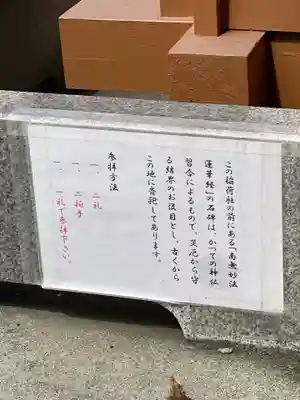 この稲荷社の前にある「南無妙法
蓮華経」の石碑は、かつての神仏
習合によるもので、災厄から守
る結界のお役目とし、古くから
この地に奉祀してあります。
参拝方法
一、二礼
一、二拍手
一、一礼で参拝下さい。